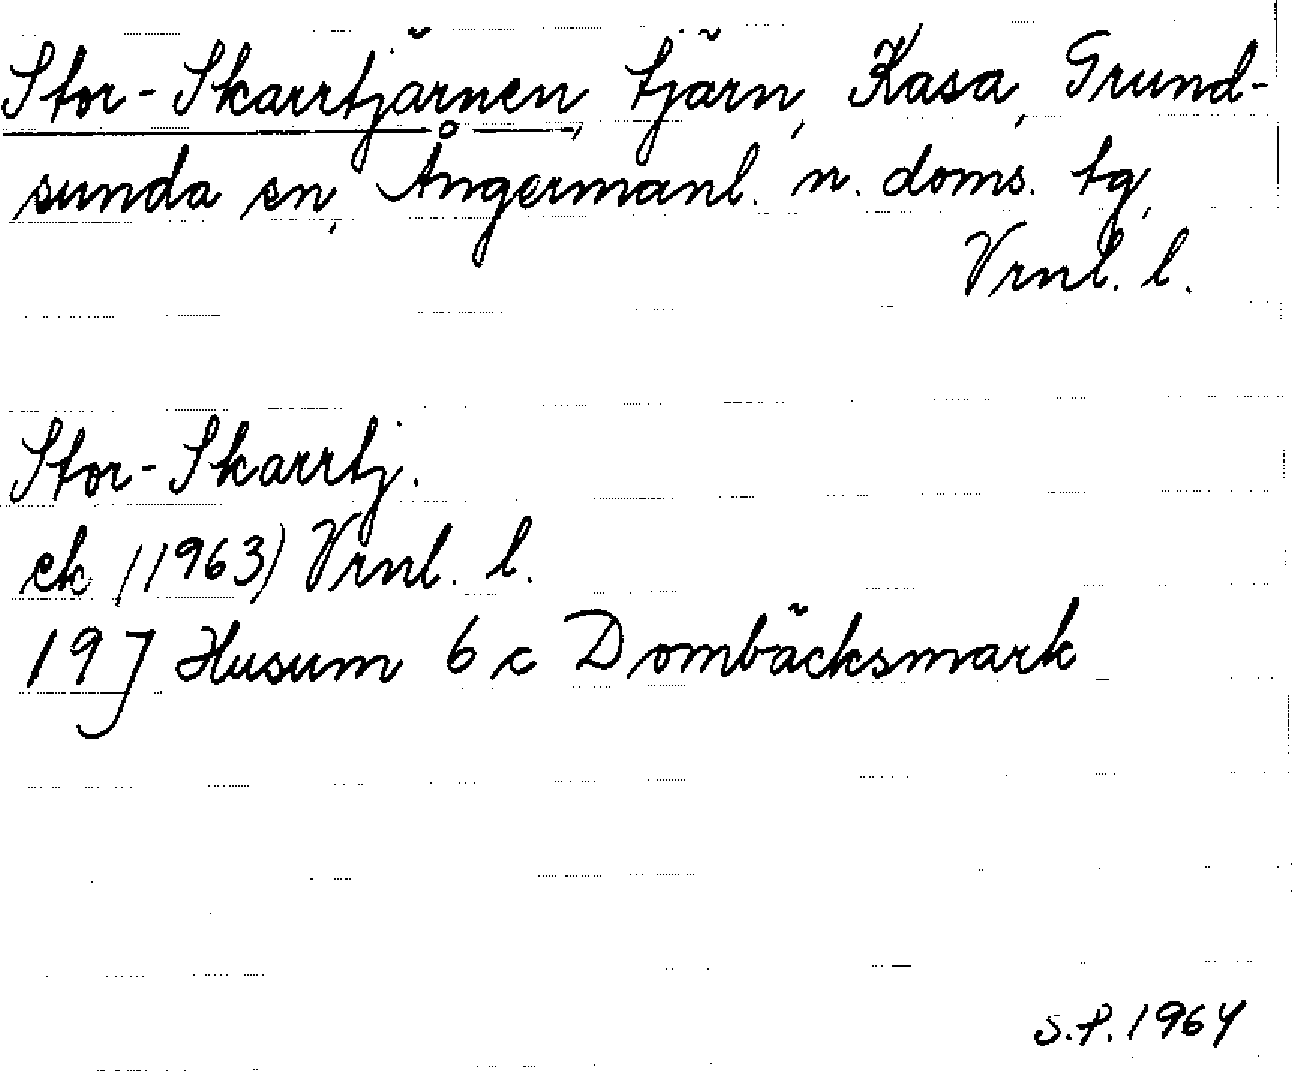 Stor-Skarrtjärnen, tjärn, Kasa, Grund-
sunda sn, Ångermanl. n. doms. tg,
Vrnl. l.
Stor-Skarrtj.
ek (1963) Vrnl. l.
19J Husum 6 c Dombäcksmark
S.P. 1964